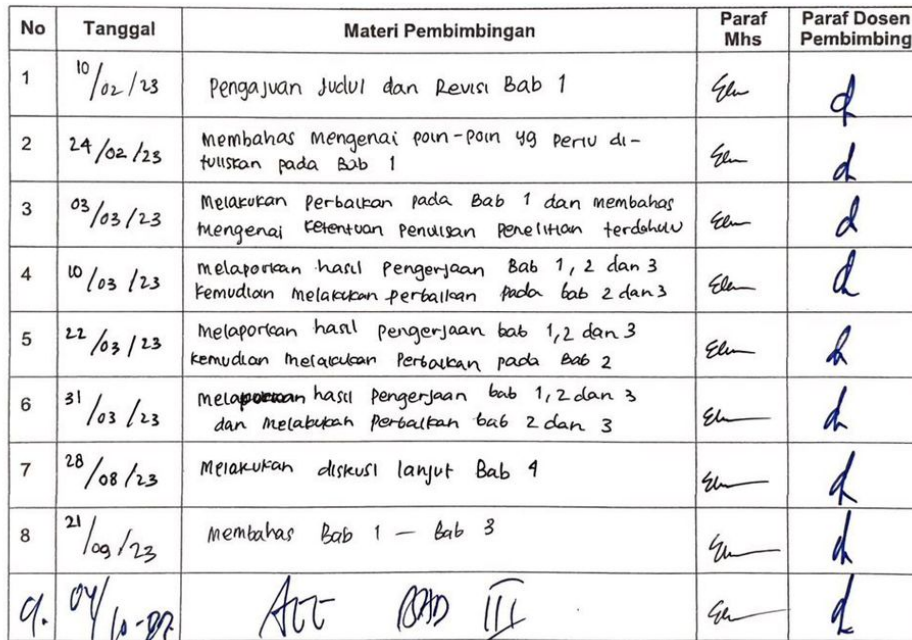 No Tanggal Materi Pembimbingan Paraf Mhs Paraf Dosen Pembimbing
1 10/02/23 Pengajuan Judul dan Revisi Bab 1
2 24/02/23 Membahas mengenai poin-poin yg perlu di-
tuliskan pada Bab 1
3 03/03/23 Melakukan perbaikan pada Bab 1 dan membahas
mengenai ketentuan penulisan penelitian terdahulu
4 10/03/23 melaporkan hasil pengerjaan Bab 1, 2 dan 3
kemudian melakukan perbaikan pada bab 2 dan 3
5 22/03/23 melaporkan hasil pengerjaan bab 1,2 dan 3
kemudian melakukan perbaikan pada Bab 2
6 31/03/23 melaporkan hasil pengerjaan bab 1,2 dan 3
dan melakukan perbaikan bab 2 dan 3
7 28/08/23 Melakukan diskusi lanjut Bab 4
8 21/09/23 Membahas Bab 1 — Bab 3
9. 04/10- ACC BAB III